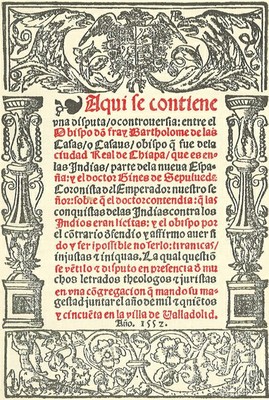 Aqui se contiene
vna disputa/o controuersia: entre el
Obispo dõ fray Bartholome de las
Casas/o Casaus/obispo q̃ fue dela
ciudad Real de Chiapa/que es en
las Indias/parte dela nueua Espa-
ña: y el doctor Gines de Sepulueda
Coronista del Emperador nuestro se
ñor: sobre q̃ el doctor contendia: q̃ las
conquistas delas Indias contra los
Indios eran licitas: y el obispo por
el cõtrario defendio y affirmo auer si
do y ser ĩpossible no serlo: tiranicas/
injustas y iniquas. La qual questiõ
se vẽtilo y disputo en presencia d̃ mu
chos letrados theologos y juristas
en vna cõgregacion q̃ mando su ma-
gestad juntar el año de mil y q̃niẽtos
y cincuẽta en la villa de Valladolid.
Año. 1552.